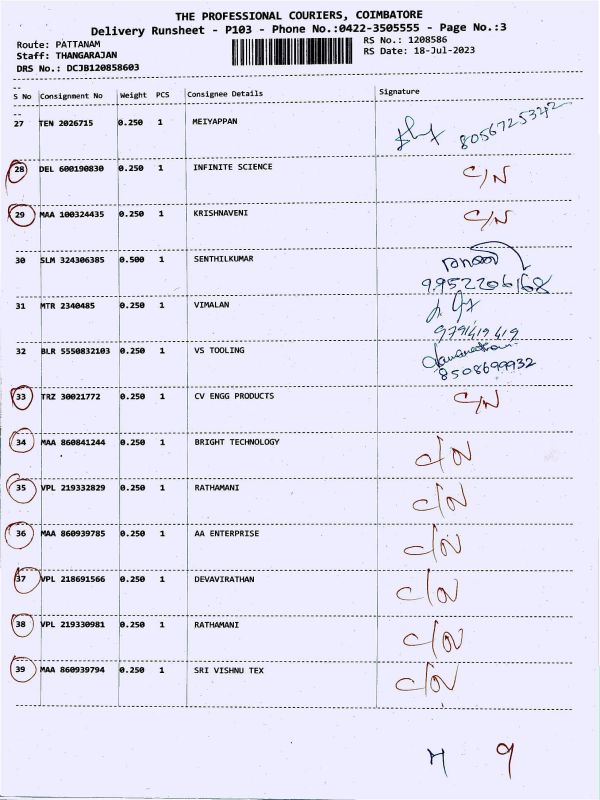 THE PROFESSIONAL COURIERS, COIMBATORE
Delivery Runsheet - P103 - Phone No.:0422-3505555 - Page No.:3
Route: PATTANAM RS No.: 1208586
Staff: THANGARAJAN RS Date: 18-Jul-2023
DRS No.: DCJB120858603
S No Consignment No Weight PCS Consignee Details Signature
27 TEN 2026715 0.250 1 MEIYAPPAN 8056725342
28 DEL 600190830 0.250 1 INFINITE SCIENCE C/N
29 MAA 100324435 0.250 1 KRISHNAVENI C/N
30 SLM 324306385 0.500 1 SENTHILKUMAR
9952206168
31 MTR 2340485 0.250 1 VIMALAN
9791419419
32 BLR 5550832103 0.250 1 VS TOOLING
8508699932
33 TRZ 30021772 0.250 1 CV ENGG PRODUCTS C/N
34 MAA 860841244 0.250 1 BRIGHT TECHNOLOGY C/N
35 VPL 219332829 0.250 1 RATHAMANI C/N
36 MAA 860939785 0.250 1 AA ENTERPRISE C/N
37 VPL 218691566 0.250 1 DEVAVIRATHAN C/N
38 VPL 219330981 0.250 1 RATHAMANI C/N
39 MAA 860939794 0.250 1 SRI VISHNU TEX C/N